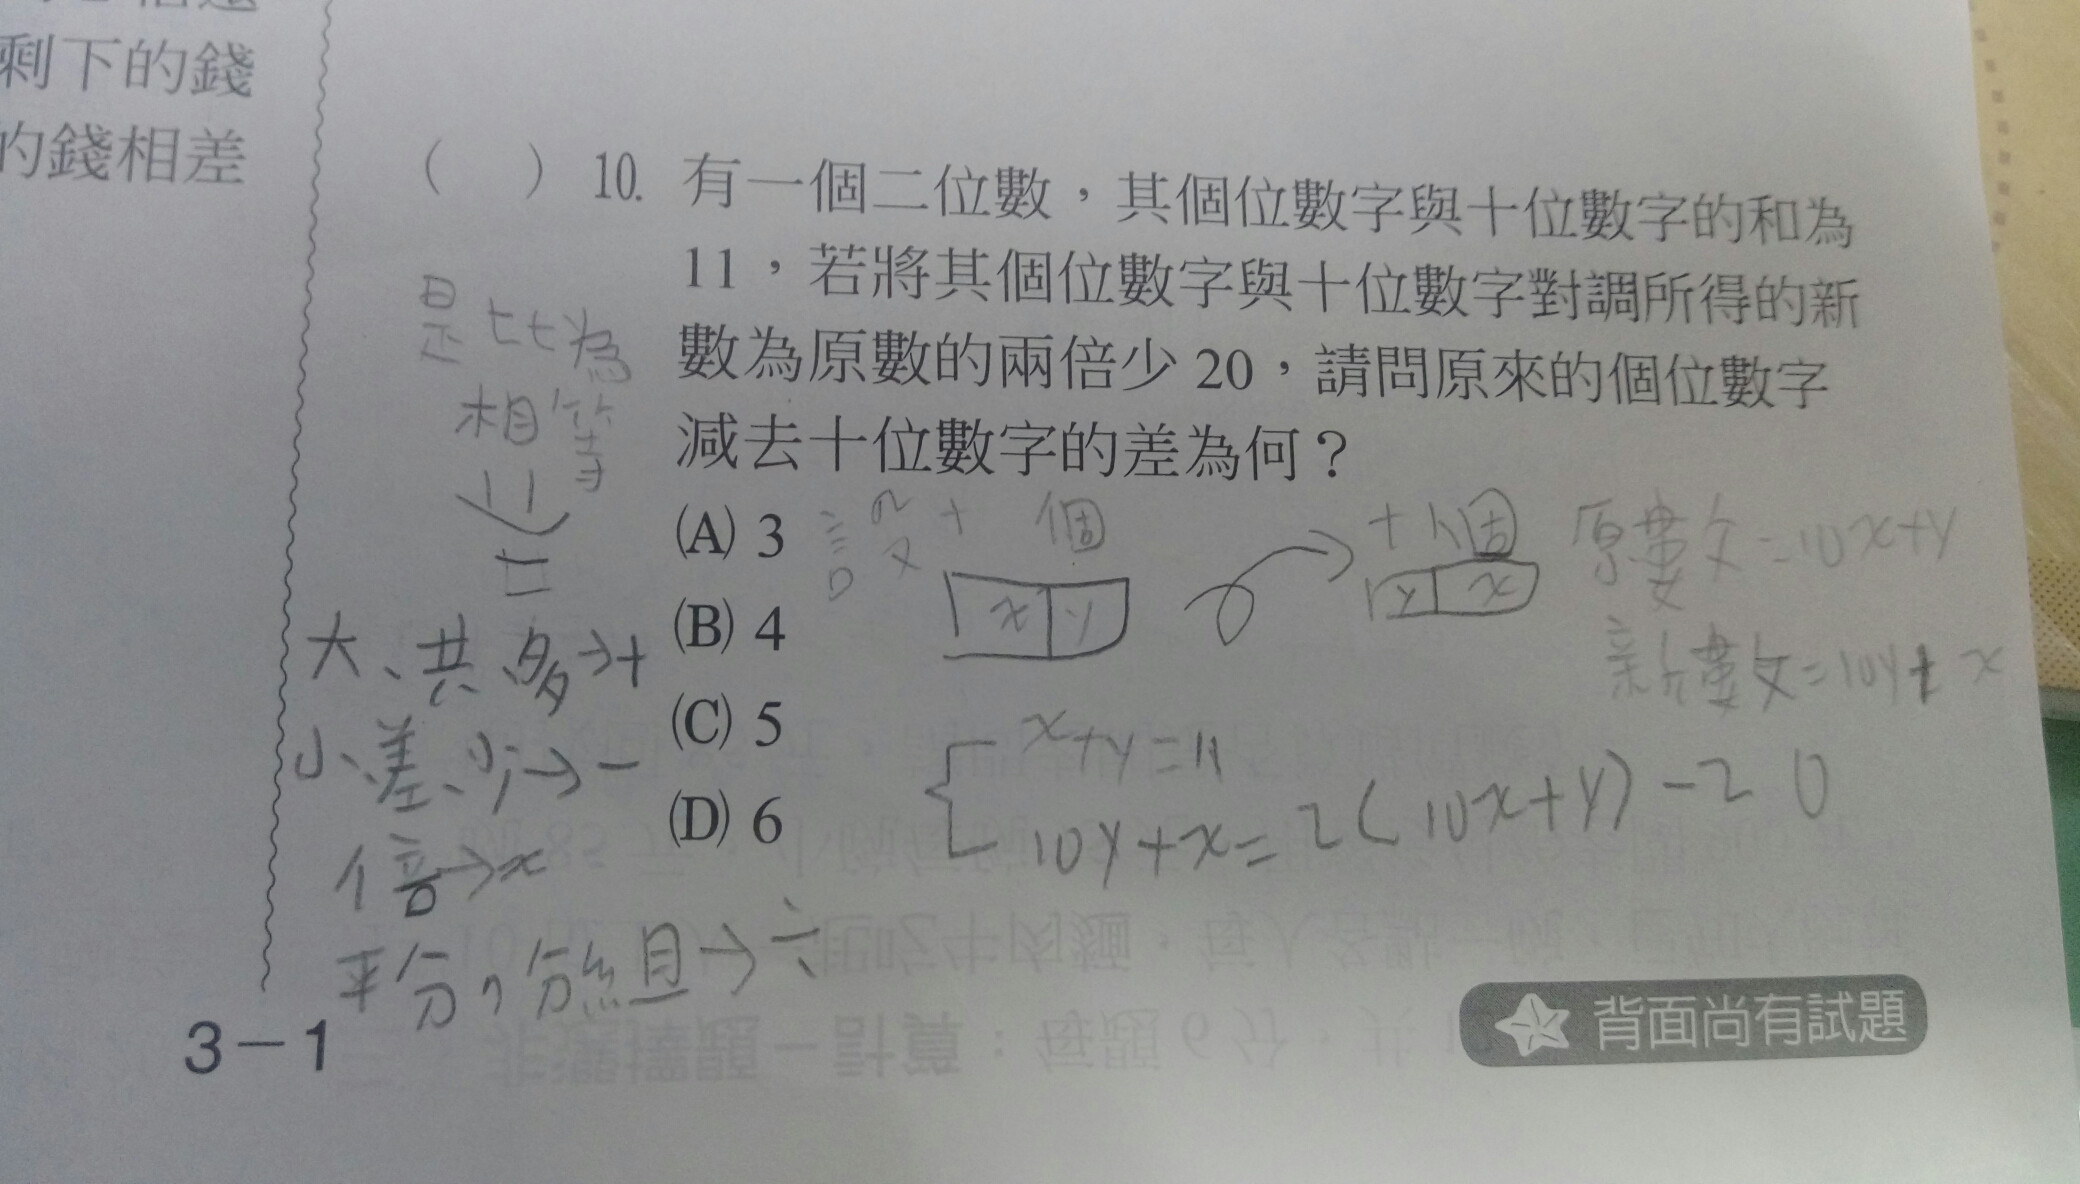 剩下的錢
的錢相差
( ) 10. 有一個二位數，其個位數字與十位數字的和為
11，若將其個位數字與十位數字對調所得的新
數為原數的兩倍少 20，請問原來的個位數字
減去十位數字的差為何？
(A) 3
(B) 4
(C) 5
(D) 6
是比為
相等
大、共、多→+
小、差、少→−
倍→x
平分，分組→÷
設 十 個
x y
十 個
y x
原數=10x+y
新數=10y+x
x+y=11
10y+x=2(10x+y)-20
3－1
背面尚有試題